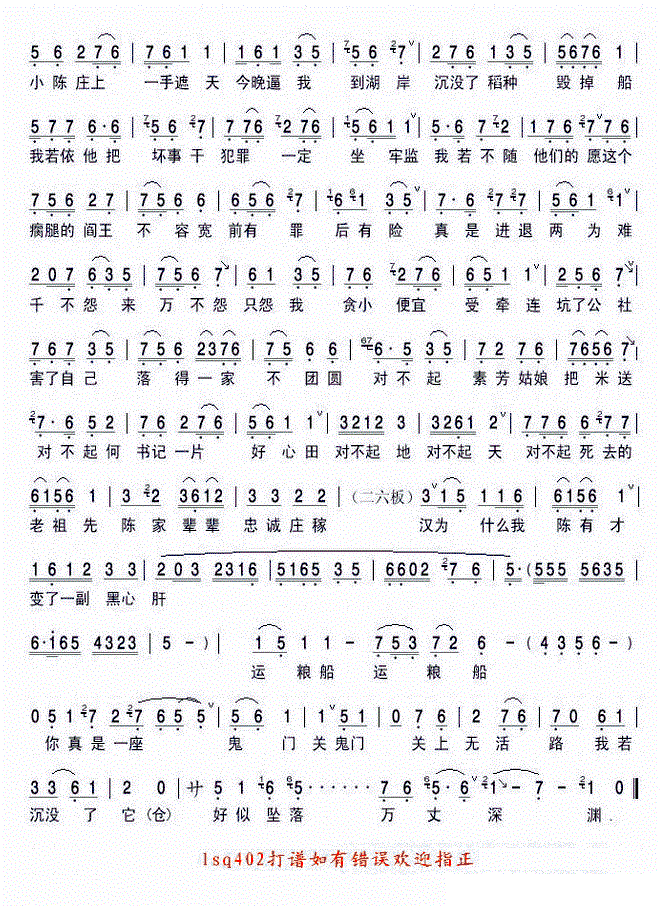 5 6 2 7 6 | 7 6 1 1 | 1 6 1 3 5 | 7 5 6 2 7 | 2 7 6 1 3 5 | 5 6 7 6 1 |
小陈 庄上 一手遮 天 今晚逼 我 到湖 岸 沉没了 稻种 毁掉 船
5 7 7 6·6 | 7 5 6 2 7 | 7 7 6 7 2 7 6 | 1 5 6 1 1 | 5·6 2 7 | 1 7 6 2 7 7 6 |
我若依 他把 坏事 干 犯罪 一定 坐 牢监 我若 不随 他们的 愿这个
7 5 6 2 7 | 7 5 6 6 | 5 6 2 7 | 1 6 6 1 3 5 | 7·6 2 7 2 7 | 7 6 5 6 1 |
瘸腿的 阎王 不 容宽 前有 罪 后有 险 真是 进退 两 为 难
2 0 7 6 3 5 | 7 5 6 7 | 6 1 3 5 | 7 6 7 2 7 6 | 6 5 1 1 | 2 7 6 6 |
千 不怨 来 万 不怨 只怨 我 贪小 便宜 受 牵连 坑了公 社
7 6 7 3 5 | 7 5 6 2 3 7 6 | 7 5 6 6 | 67 6·5 3 5 | 7 2 7 6 | 7 6 5 6 7 |
害了自 己 落 得 一 家 不 团 圆 对 不 起 素芳 姑娘 把 米 送
2 7·6 5 2 | 7 6 2 7 6 | 5 6 1 1 | 3 2 1 2 3 | 3 2 6 1 2 | 7 7 6 6 2 7 7 |
对 不起何 书记 一片 好 心 田 对不起 地 对不起 天 对不起 死 去的
6 1 5 6 1 | 3 2 2 3 6 1 2 | 3 3 2 2 | （二六板） 3 1 5 1 1 6 | 6 1 5 6 1 |
老 祖 先 陈 家 辈 辈 忠 诚 庄 稼 汉 为 什么我 陈 有 才
1 6 1 2 3 3 | 2 0 3 2 3 1 6 | 5 1 6 5 3 5 | 6 6 0 2 2 7 6 | 5·(5 5 5 5 6 3 5 |
变了一副 黑心 肝
6·1 6 5 4 3 2 3 | 5 -) | 1 5 1 1 - | 7 5 3 7 2 6 - (4 3 5 6 -)
运 粮 船 运 粮 船
0 5 1 2 7 2 2 7 6 5 5 | 5 6 1 | 1 5 1 | 0 7 6 2 | 7 6 | 7 0 6 1 |
你 真 是 一 座 鬼 门 关 鬼门 关上 无 活 路 我 若
3 3 6 1 | 2 0 | サ 5 1 6 6 5 ······ 7 6 5·6 2 1 - 7 - 2 1 0
沉没 了 它 (仓) 好 似 坠 落 万 丈 深 渊.
lsq402打谱如有错误欢迎指正